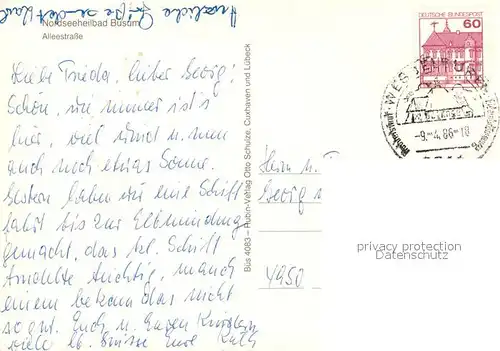 Herzliche Grüße sendet
Nordseeheilbad Büsum
Alleestraße
Liebe Frieda, lieber Georg!
Schön, wie immer ist's
hier, viel Wind u. nun
auch noch etwas Sonne.
Gestern haben wir eine Schiff
fahrt bis zur Elbmündung
gemacht, das kl. Schiff
tüchtig, manch
einem bekam das nicht
so gut. Euch u. Euren Kindern
viele lb. Grüsse Eure Käth
Büs 4083 – Rubin-Verlag Otto Schulze, Cuxhaven und Lübeck
Herrn u. F
Georg
4950
DEUTSCHE BUNDESPOST
60
WESSELBUREN
-9.-4.86-18
privacy protection
Datenschutz